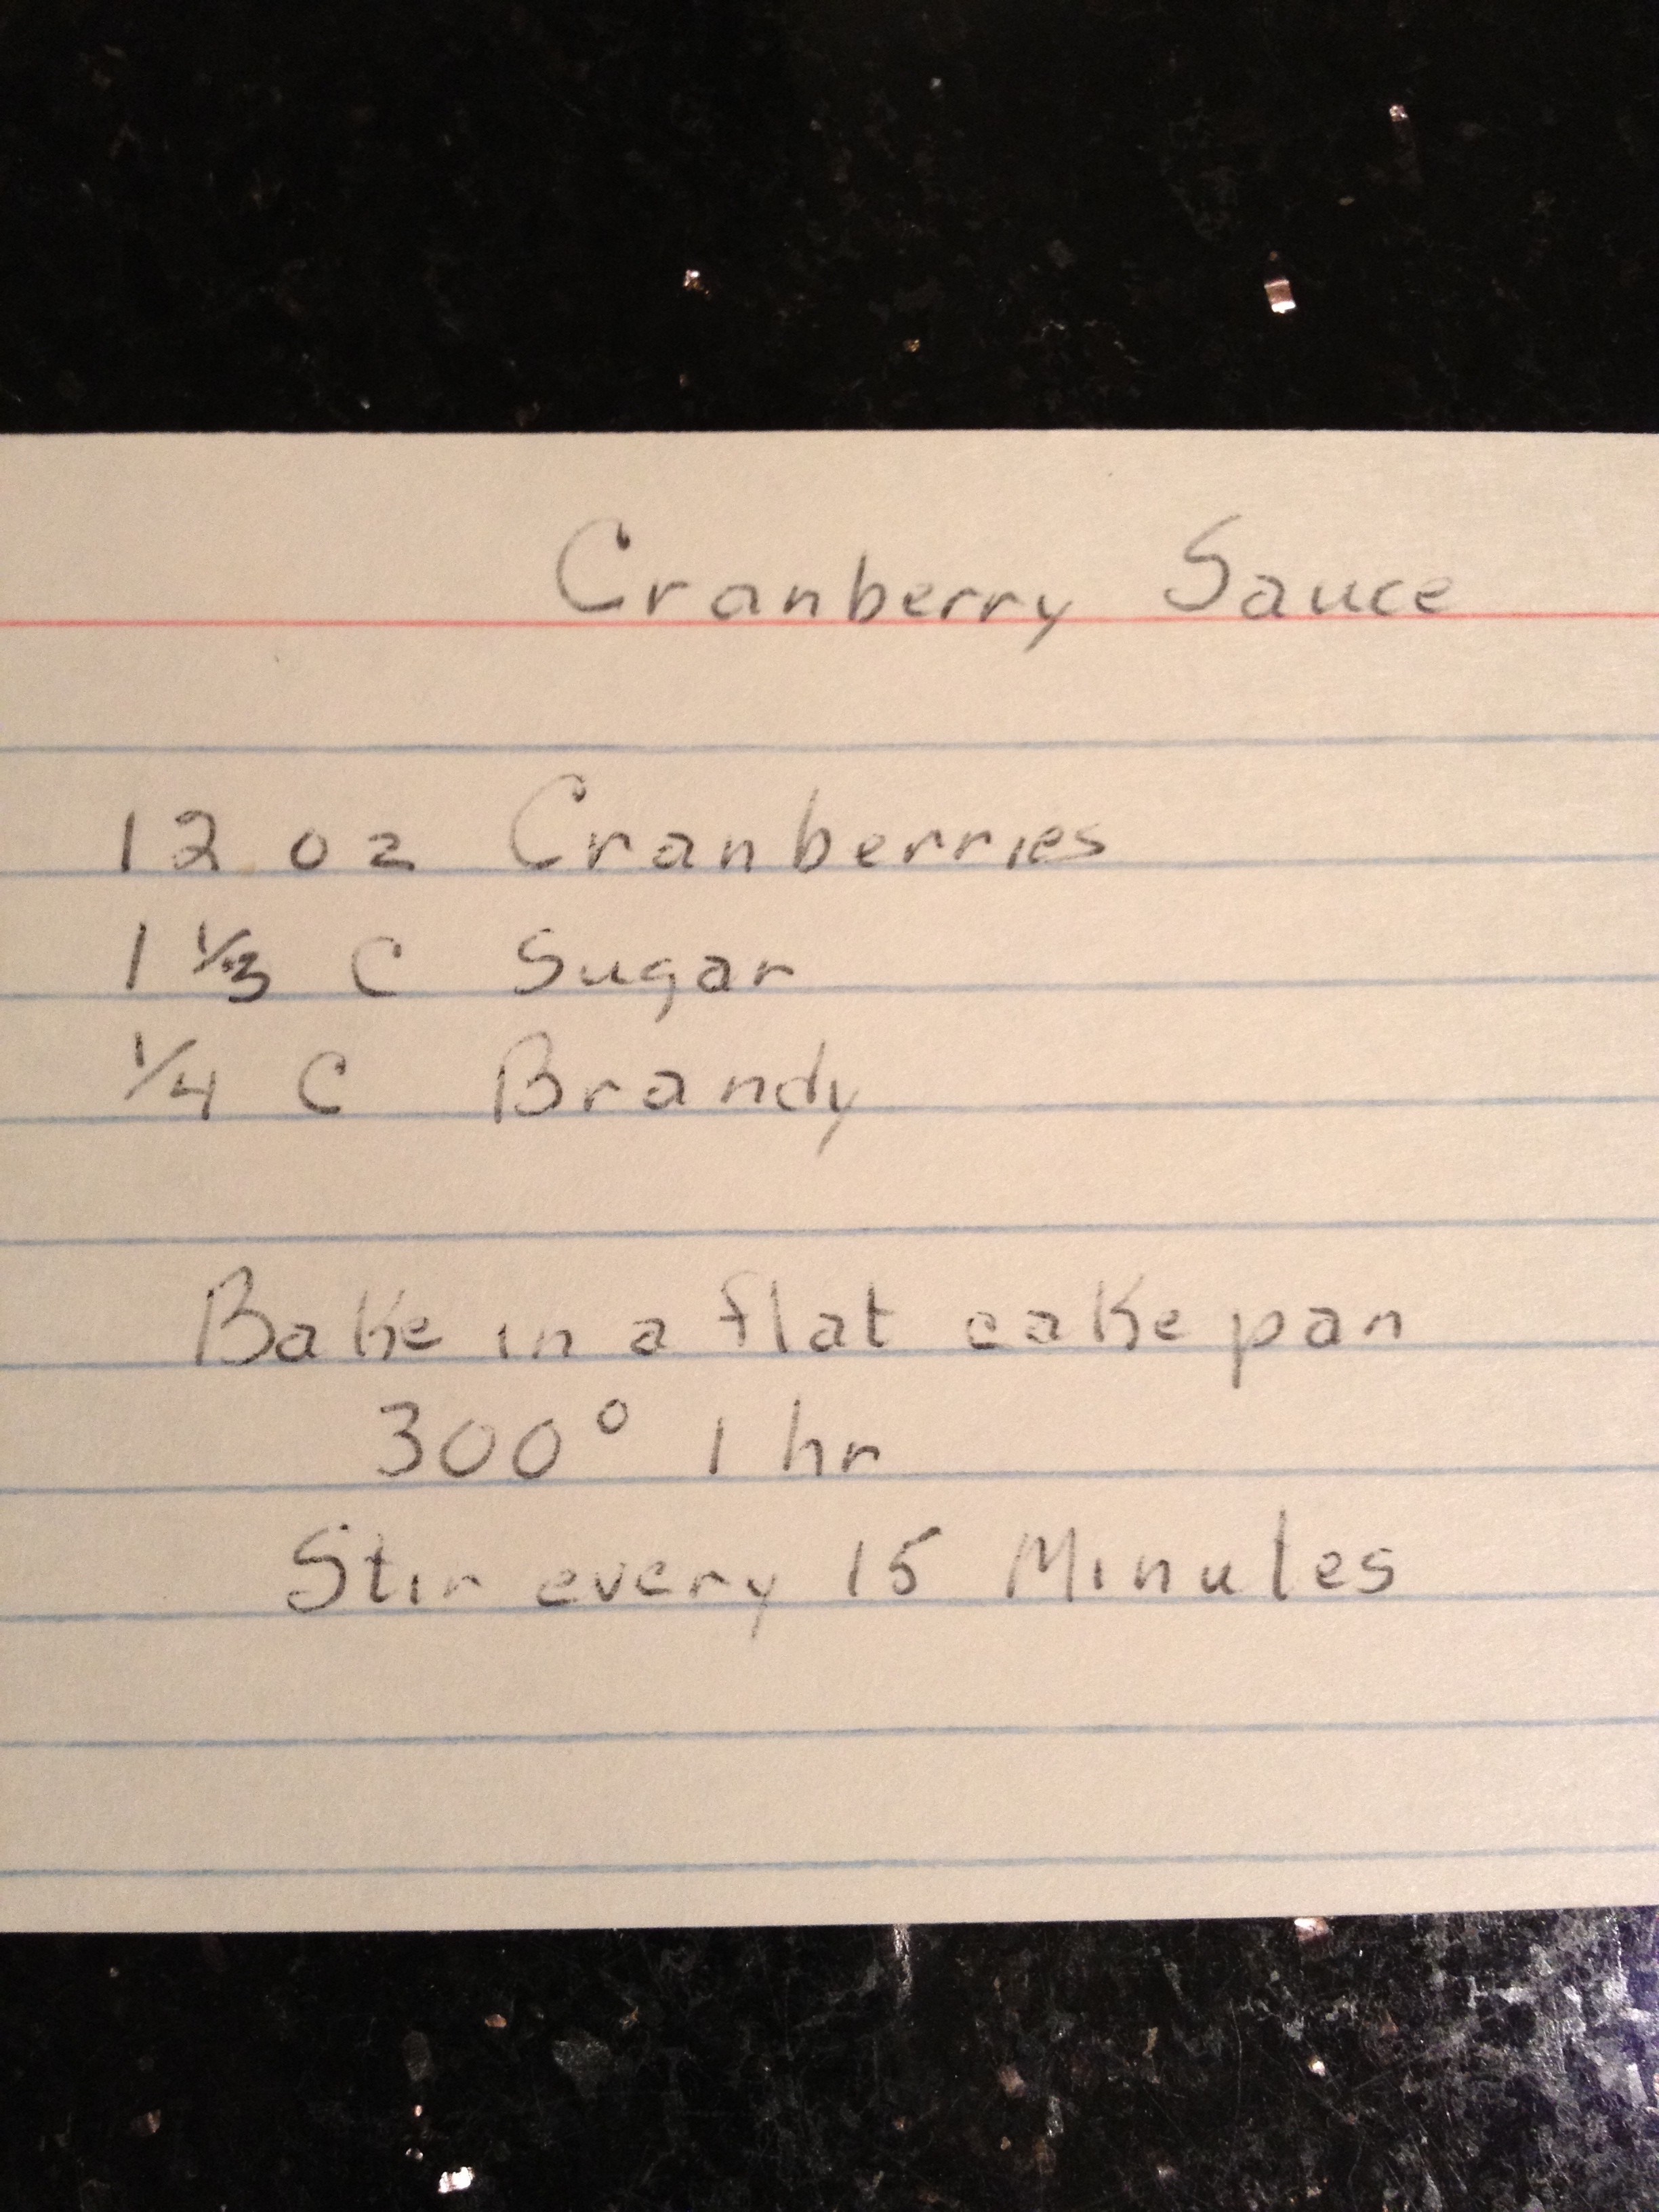 Cranberry Sauce
12 oz Cranberries
1 1/3 C Sugar
1/4 C Brandy
Bake in a flat cake pan
300° 1 hr
Stir every 15 Minutes